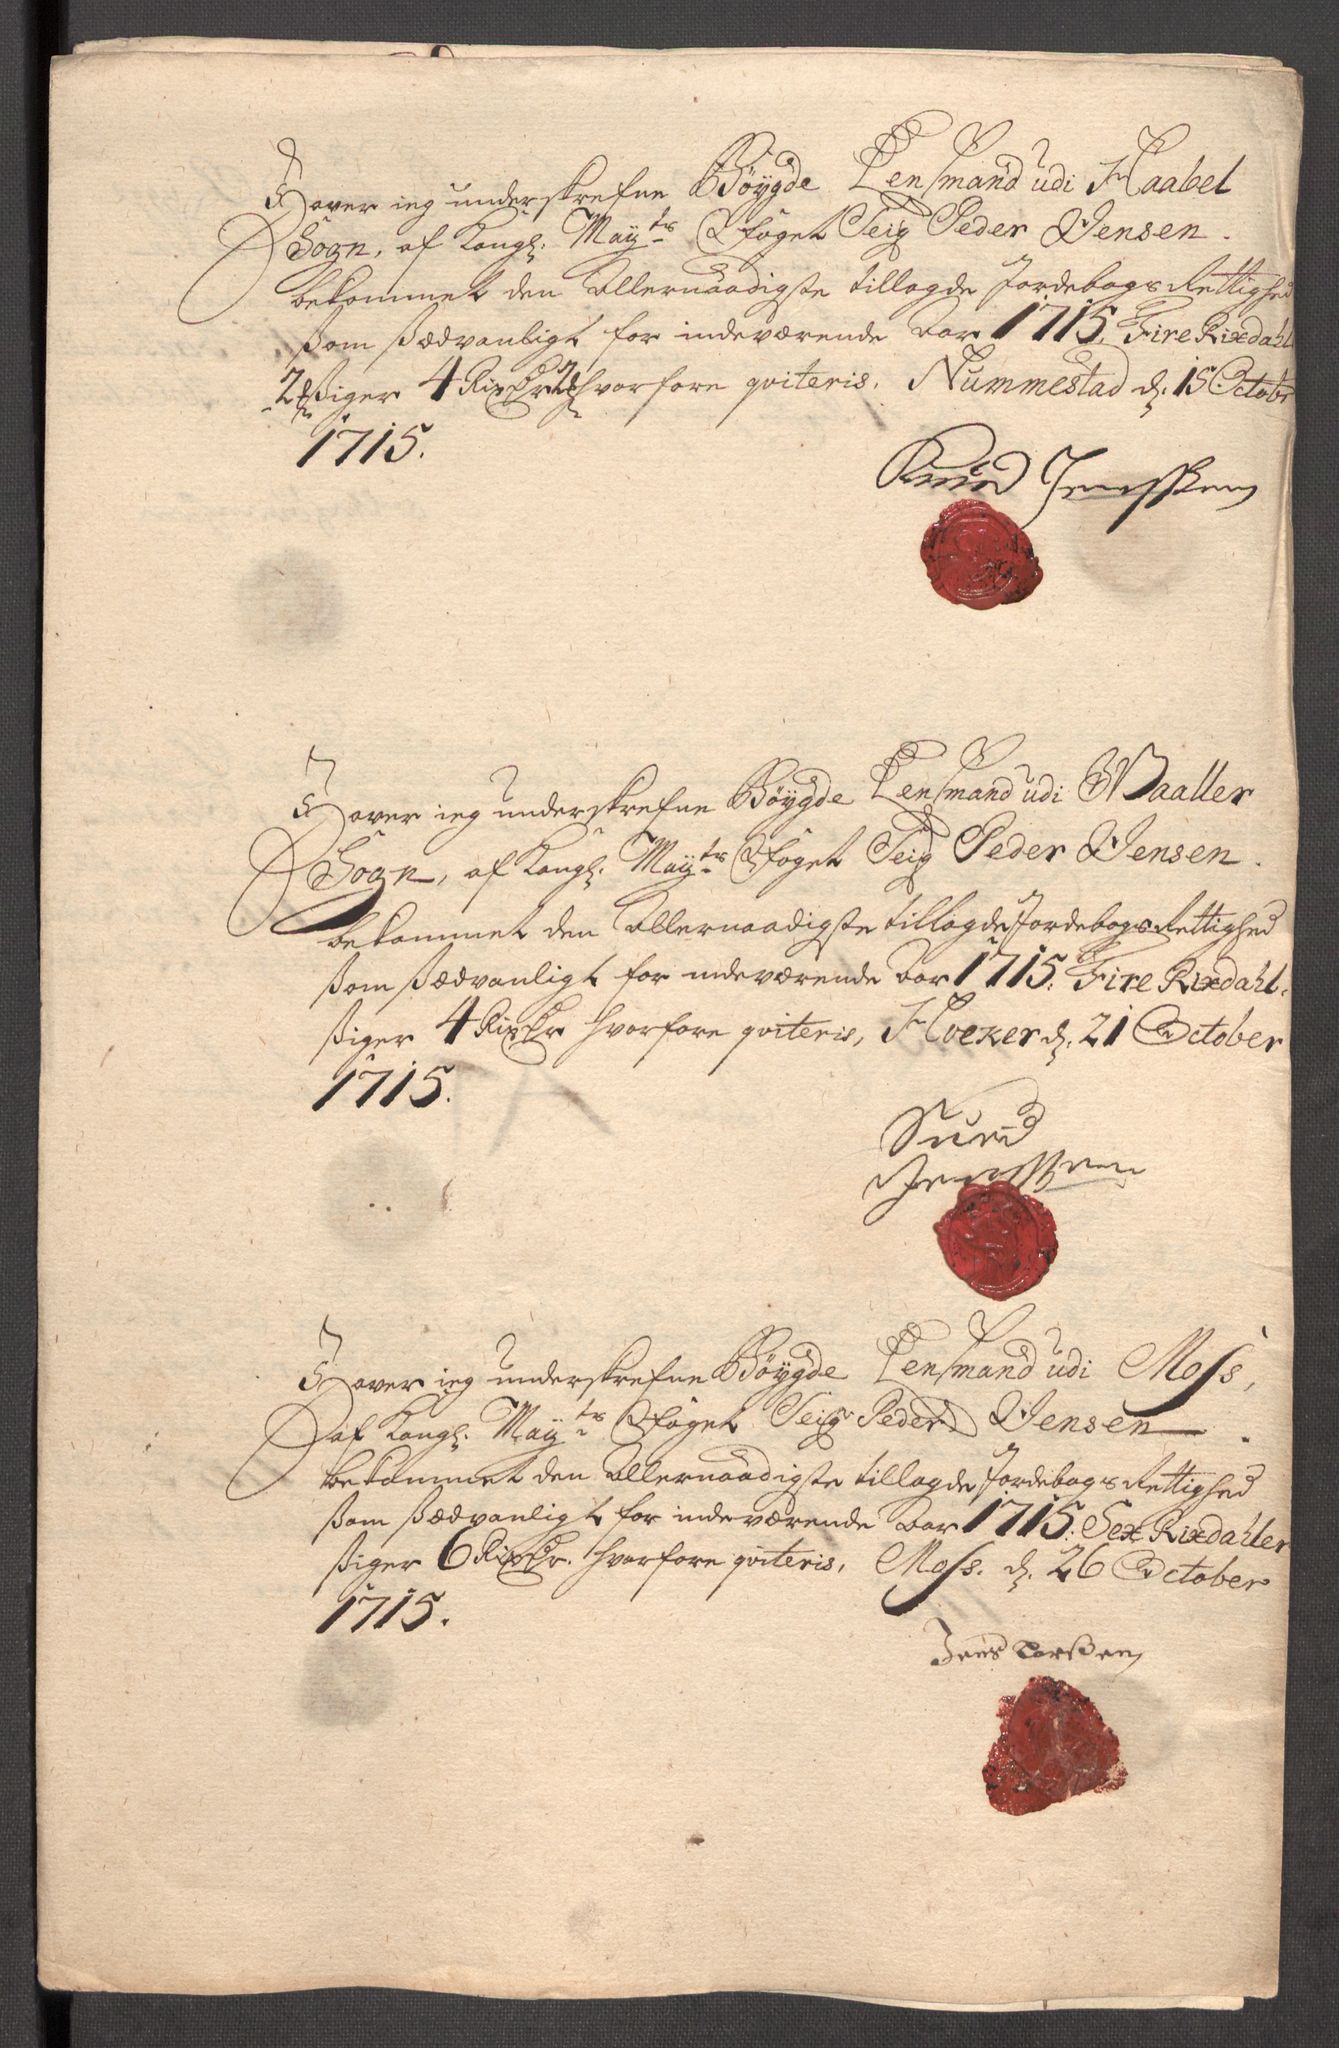 Hafver ieg underskrefne Böygde Lensmand udi Haabel
Sogn, af Kongl: May:ts Foget Seig Peder Jensen.
bekommet den Allernaadigste tillagde Jordebogs Rettighed
som sædvanligt for indeværende Aar 1715. Fire Rixdahl
2 ß siger 4 Rixdr 2 ß hvorfore qviteris. Nummestad d: 15 Octobr
1715.
Knud Jensßen
Hafver ieg underskrefne Böygde Lensmand udi Waaller
Sogn, af Kongl: May:ts Foget Seig Peder Jensen.
bekommet den Allernaadigste tillagde Jordebogs Rettighed
som sædvanligt for indeværende Aar 1715. Fire Rixdahl.
siger 4 Rixdr hvorfore qviteris, Hueker d: 21 October
1715.
Siurd
Jensßen
Hafver ieg underskrefne Böygde Lensmand udi Moss,
af Kongl: May:ts Foget Seigr Peder Jensen.
bekommet den Allernaadigste tillagde Jordebogs Rettighed
som sædvanligt for indeværende Aar 1715. Sex Rixdahler
siger 6 Rixdr. hvorfore qviteris, Moss. d: 26 October
1715.
Jens Larßen